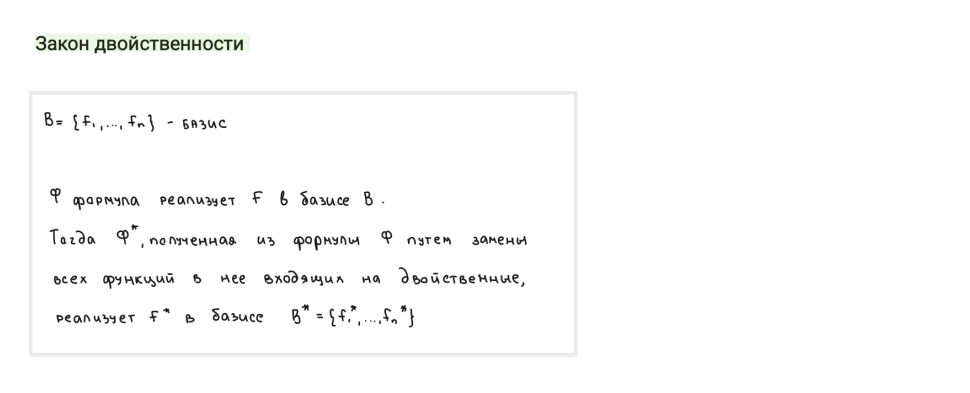 Закон двойственности
B = {f₁, ..., fₙ} - базис
Φ формула реализует F в базисе B.
Тогда Φ*, полученная из формулы Φ путем замены
всех функций в нее входящих на двойственные,
реализует f* в базисе B* = {f₁*, ..., fₙ*}